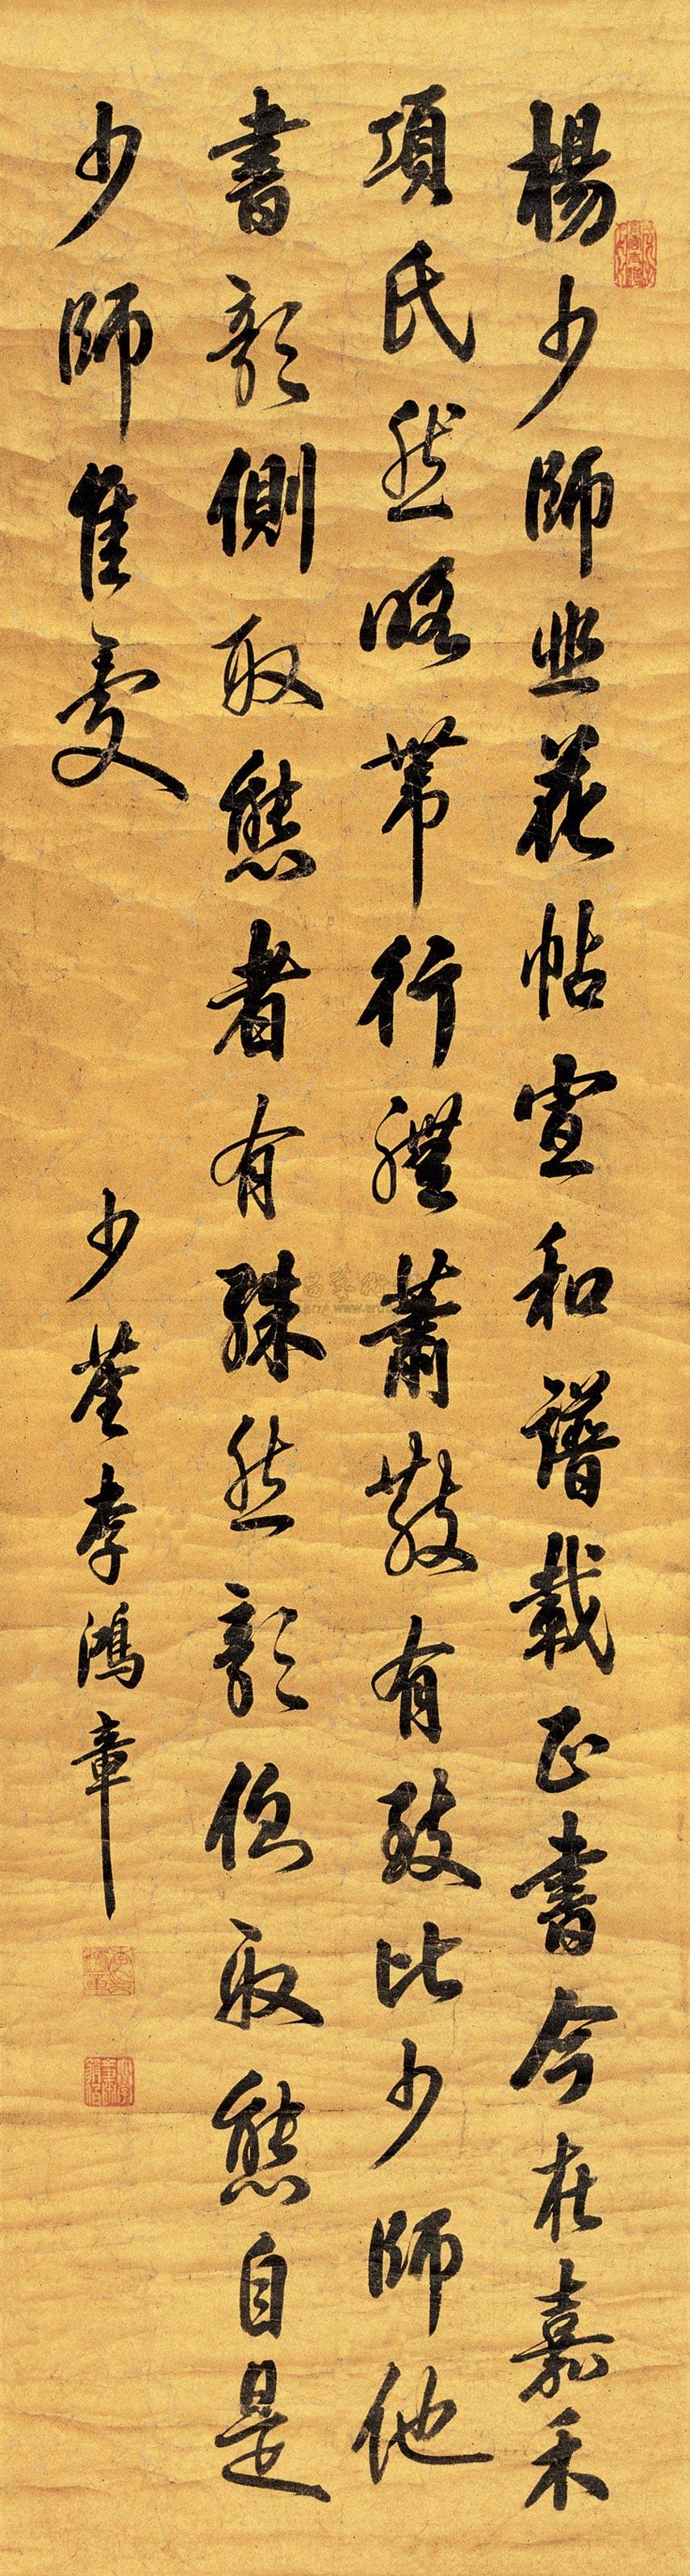 楊少師韭花帖宣和譜載正書今在嘉禾
項氏然略帶行體蕭散有致比少師他
書欹側取態者有殊然欹側取態自是
少師佳處
少荃李鴻章